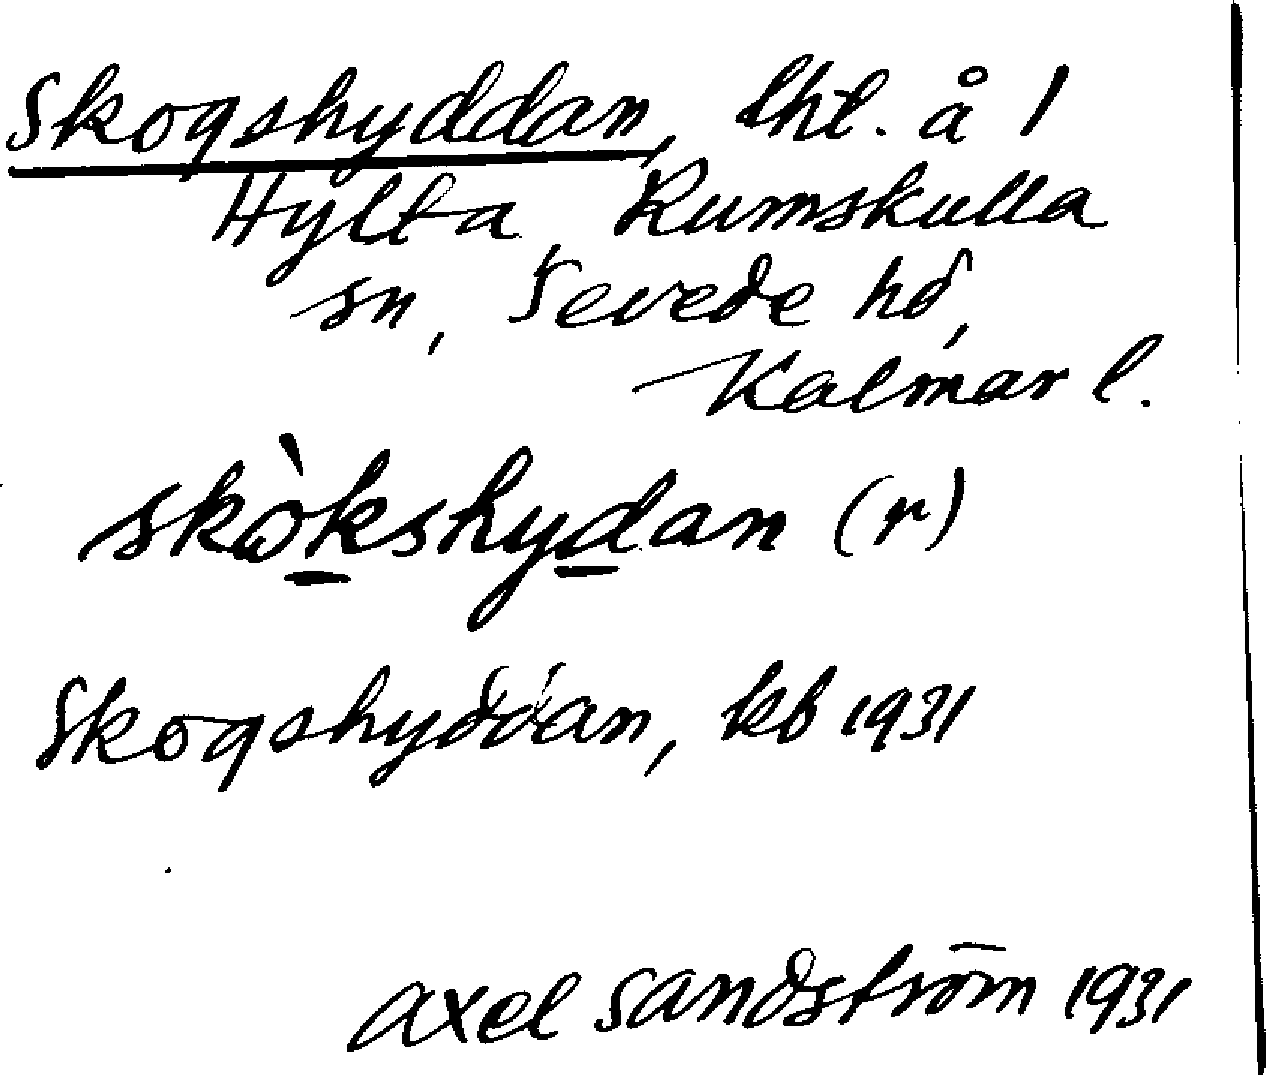 Skogshyddan, lht. å 1
Hylta, Rumskulla
sn, Sevede hd,
Kalmar l.
skòkshydan (r)
Skogshyddan, kb 1931
Axel Sandström 1931